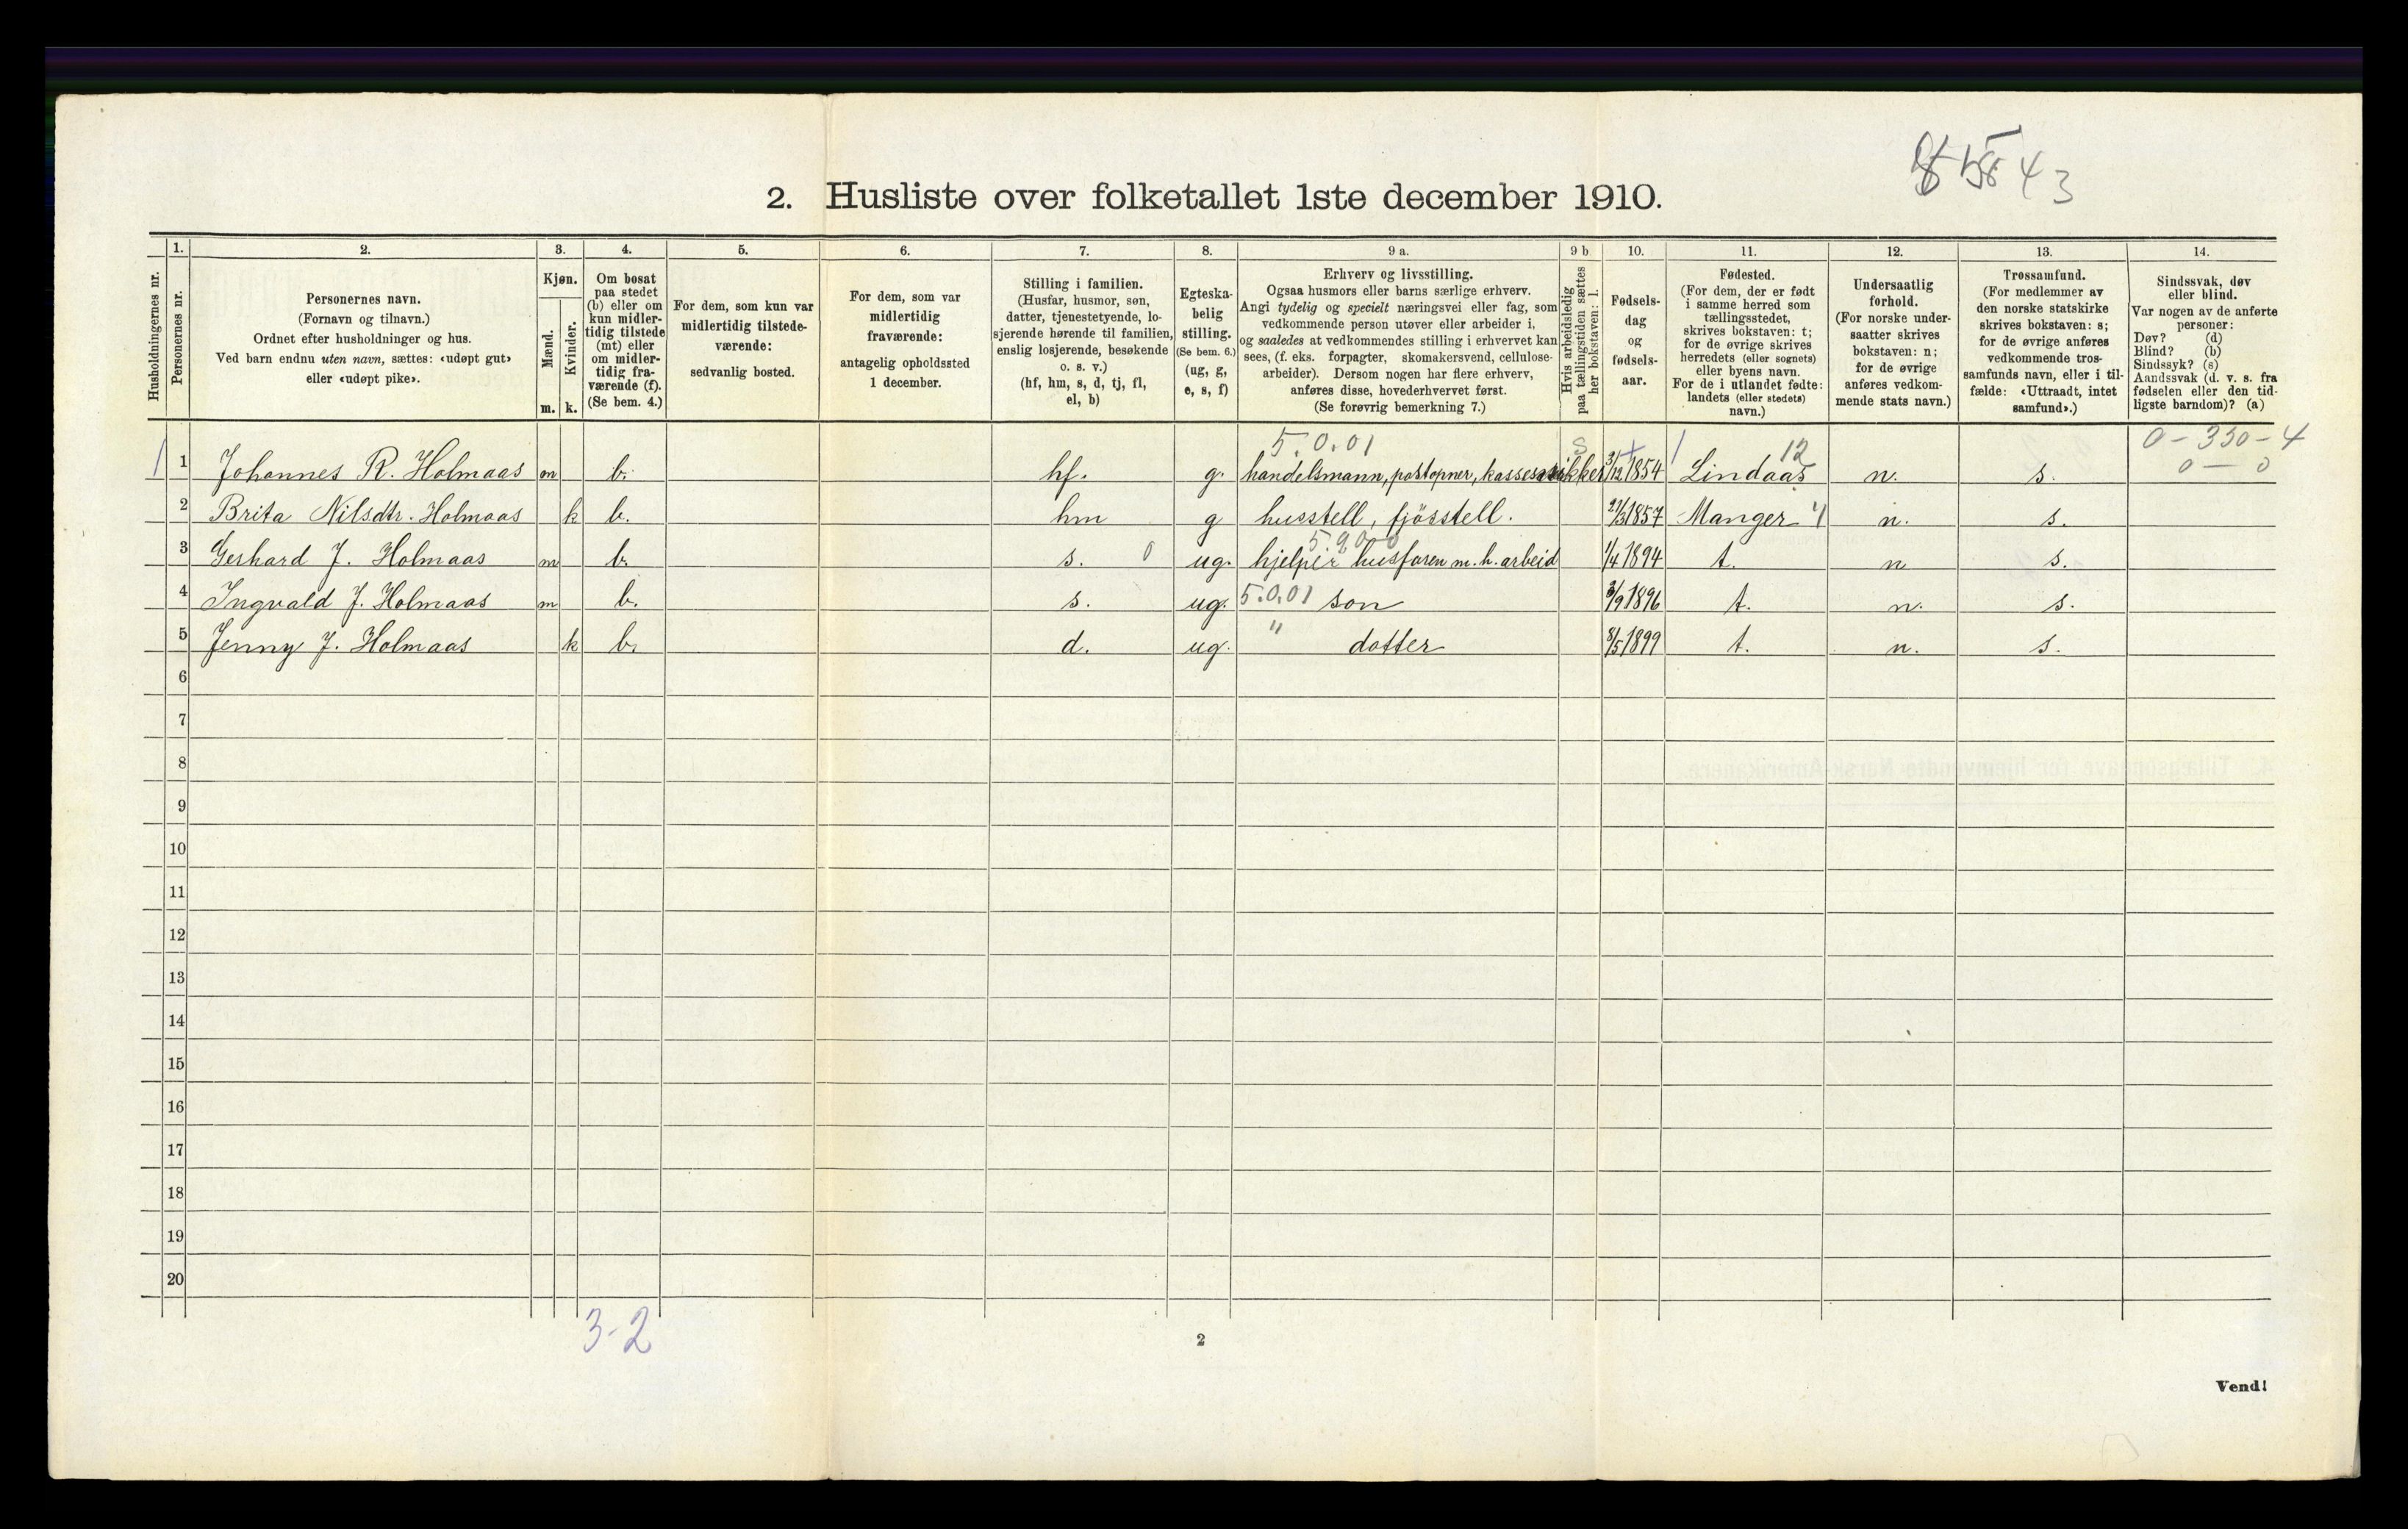 2. Husliste over folketallet 1ste december 1910.
43
Husholdningernes nr.
1.
Personernes nr.
2.
Personernes navn.
(Fornavn og tilnavn.)
Ordnet efter husholdninger og hus.
Ved barn endnu uten navn, sættes: «udøpt gut»
eller «udøpt pike».
3.
Kjøn.
Mænd.
Kvinder.
m. k.
4.
Om bosat
paa stedet
(b) eller om
kun midler-
tidig tilstede
(mt) eller
om midler-
tidig fra-
værende (f).
(Se bem. 4.)
5.
For dem, som kun var
midlertidig tilstede-
værende:
sedvanlig bosted.
6.
For dem, som var
midlertidig
fraværende:
antagelig opholdssted
1 december.
7.
Stilling i familien.
(Husfar, husmor, søn,
datter, tjenestetyende, lo-
sjerende hørende til familien,
enslig losjerende, besøkende
o. s. v.)
(hf, hm, s, d, tj, fl,
el, b)
8.
Egteska-
belig
stilling.
(Se bem. 6.)
(ug, g,
e, s, f)
9 a.
Erhverv og livsstilling.
Ogsaa husmors eller barns særlige erhverv.
Angi tydelig og specielt næringsvei eller fag, som
vedkommende person utøver eller arbeider i,
og saaledes at vedkommendes stilling i erhvervet kan
sees, (f. eks. forpagter, skomakersvend, cellulose-
arbeider). Dersom nogen har flere erhverv,
anføres disse, hovederhvervet først.
(Se forøvrig bemerkning 7.)
9 b
Hvis arbeidsledig
paa tællingstiden sættes
her bokstaven: l.
10.
Fødsels-
dag
og
fødsels-
aar.
11.
Fødested.
(For dem, der er født
i samme herred som
tællingsstedet,
skrives bokstaven: t;
for de øvrige skrives
herredets (eller sognets)
eller byens navn.
For de i utlandet fødte:
landets (eller stedets)
navn.)
12.
Undersaatlig
forhold.
(For norske under-
saatter skrives
bokstaven: n;
for de øvrige
anføres vedkom-
mende stats navn.)
13.
Trossamfund.
(For medlemmer av
den norske statskirke
skrives bokstaven: s;
for de øvrige anføres
vedkommende tros-
samfunds navn, eller i til-
fælde: «Uttraadt, intet
samfund».)
14.
Sindssvak, døv
eller blind.
Var nogen av de anførte
personer:
Døv? (d)
Blind? (b)
Sindssyk? (s)
Aandssvak (d. v. s. fra
fødselen eller den tid-
ligste barndom)? (a)
5.0.01 s 12 0-330-4
1 1 Johannes R. Holmaas m b. hf. g. handelsmann, postopner, 3/12 1854 Lindaas n. s. 0 — 0
2 Brita Nilsdtr. Holmaas k b. hm g husstell, fjösstell. 21/3 1857 Manger 4 n. s.
5.900
3 Gerhard J. Holmaas m b. s. 0 ug. hjelper husfaren m. h. arbeid 1/4 1894 t. n s.
4 Ingvald J. Holmaas m b. s. ug. 5.0.01 son 3/9 1896 t. n. s.
5 Jenny J. Holmaas k b. d. ug. " dotter 8/5 1899 t. n. s.
6
7
8
9
10
11
12
13
14
15
16
17
18
19
20
3-2
2
Vend!